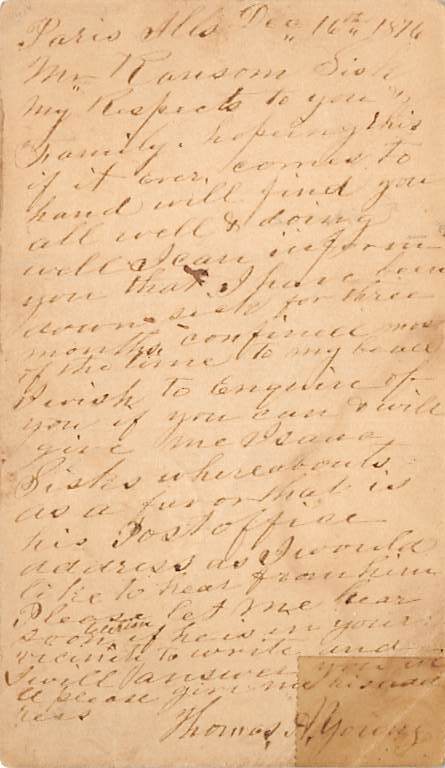 Paris Ills Dec 16th 1876
Mr Ransom Sisk
My Respects to you &
Family. hopeing this
if it ever comes to
hand will find you
all well & doing
well I can inform
you that I have been
down sick for three
months confined most
of the time to my bead
I wish to Enquire of
you if you can & will
give me Isaac
Sisks whereabouts
as a favor that is
his Post office
address as I would
like to hear from him
Please let me hear
soon if he is in your
vicinity to write and
I will answer you in
please give me his add
ress
Thomas A. Young